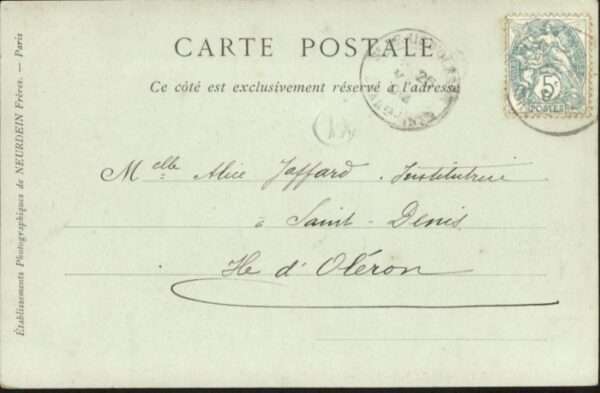 CARTE POSTALE
Ce côté est exclusivement réservé à l'adresse
5c
POSTES
Melle Alice Jaffard . Institutrice
à Saint - Denis
Ile d'Oléron
Établissements Photographiques de NEURDEIN Frères. — Paris